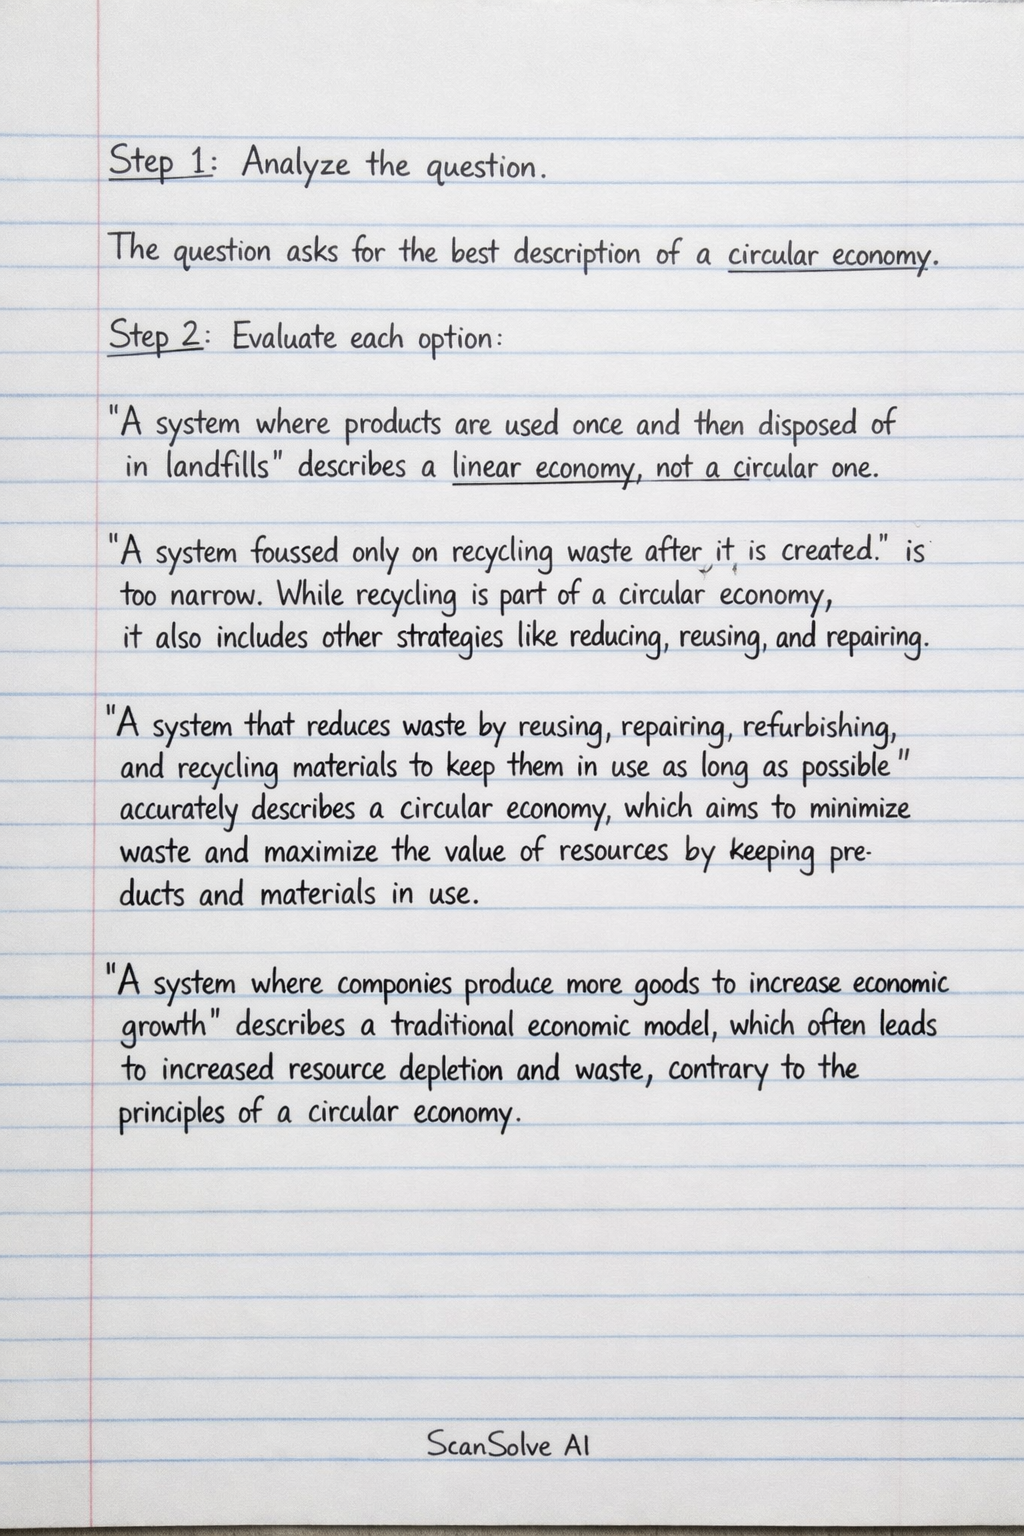 Step 1: Analyze the question.
The question asks for the best description of a circular economy.
Step 2: Evaluate each option:
"A system where products are used once and then disposed of
in landfills" describes a linear economy, not a circular one.
"A system foussed only on recycling waste after it is created." is
too narrow. While recycling is part of a circular economy,
it also includes other strategies like reducing, reusing, and repairing.
"A system that reduces waste by reusing, repairing, refurbishing,
and recycling materials to keep them in use as long as possible"
accurately describes a circular economy, which aims to minimize
waste and maximize the value of resources by keeping pre-
ducts and materials in use.
"A system where componies produce more goods to increase economic
growth" describes a traditional economic model, which often leads
to increased resource depletion and waste, contrary to the
principles of a circular economy.
ScanSolve AI